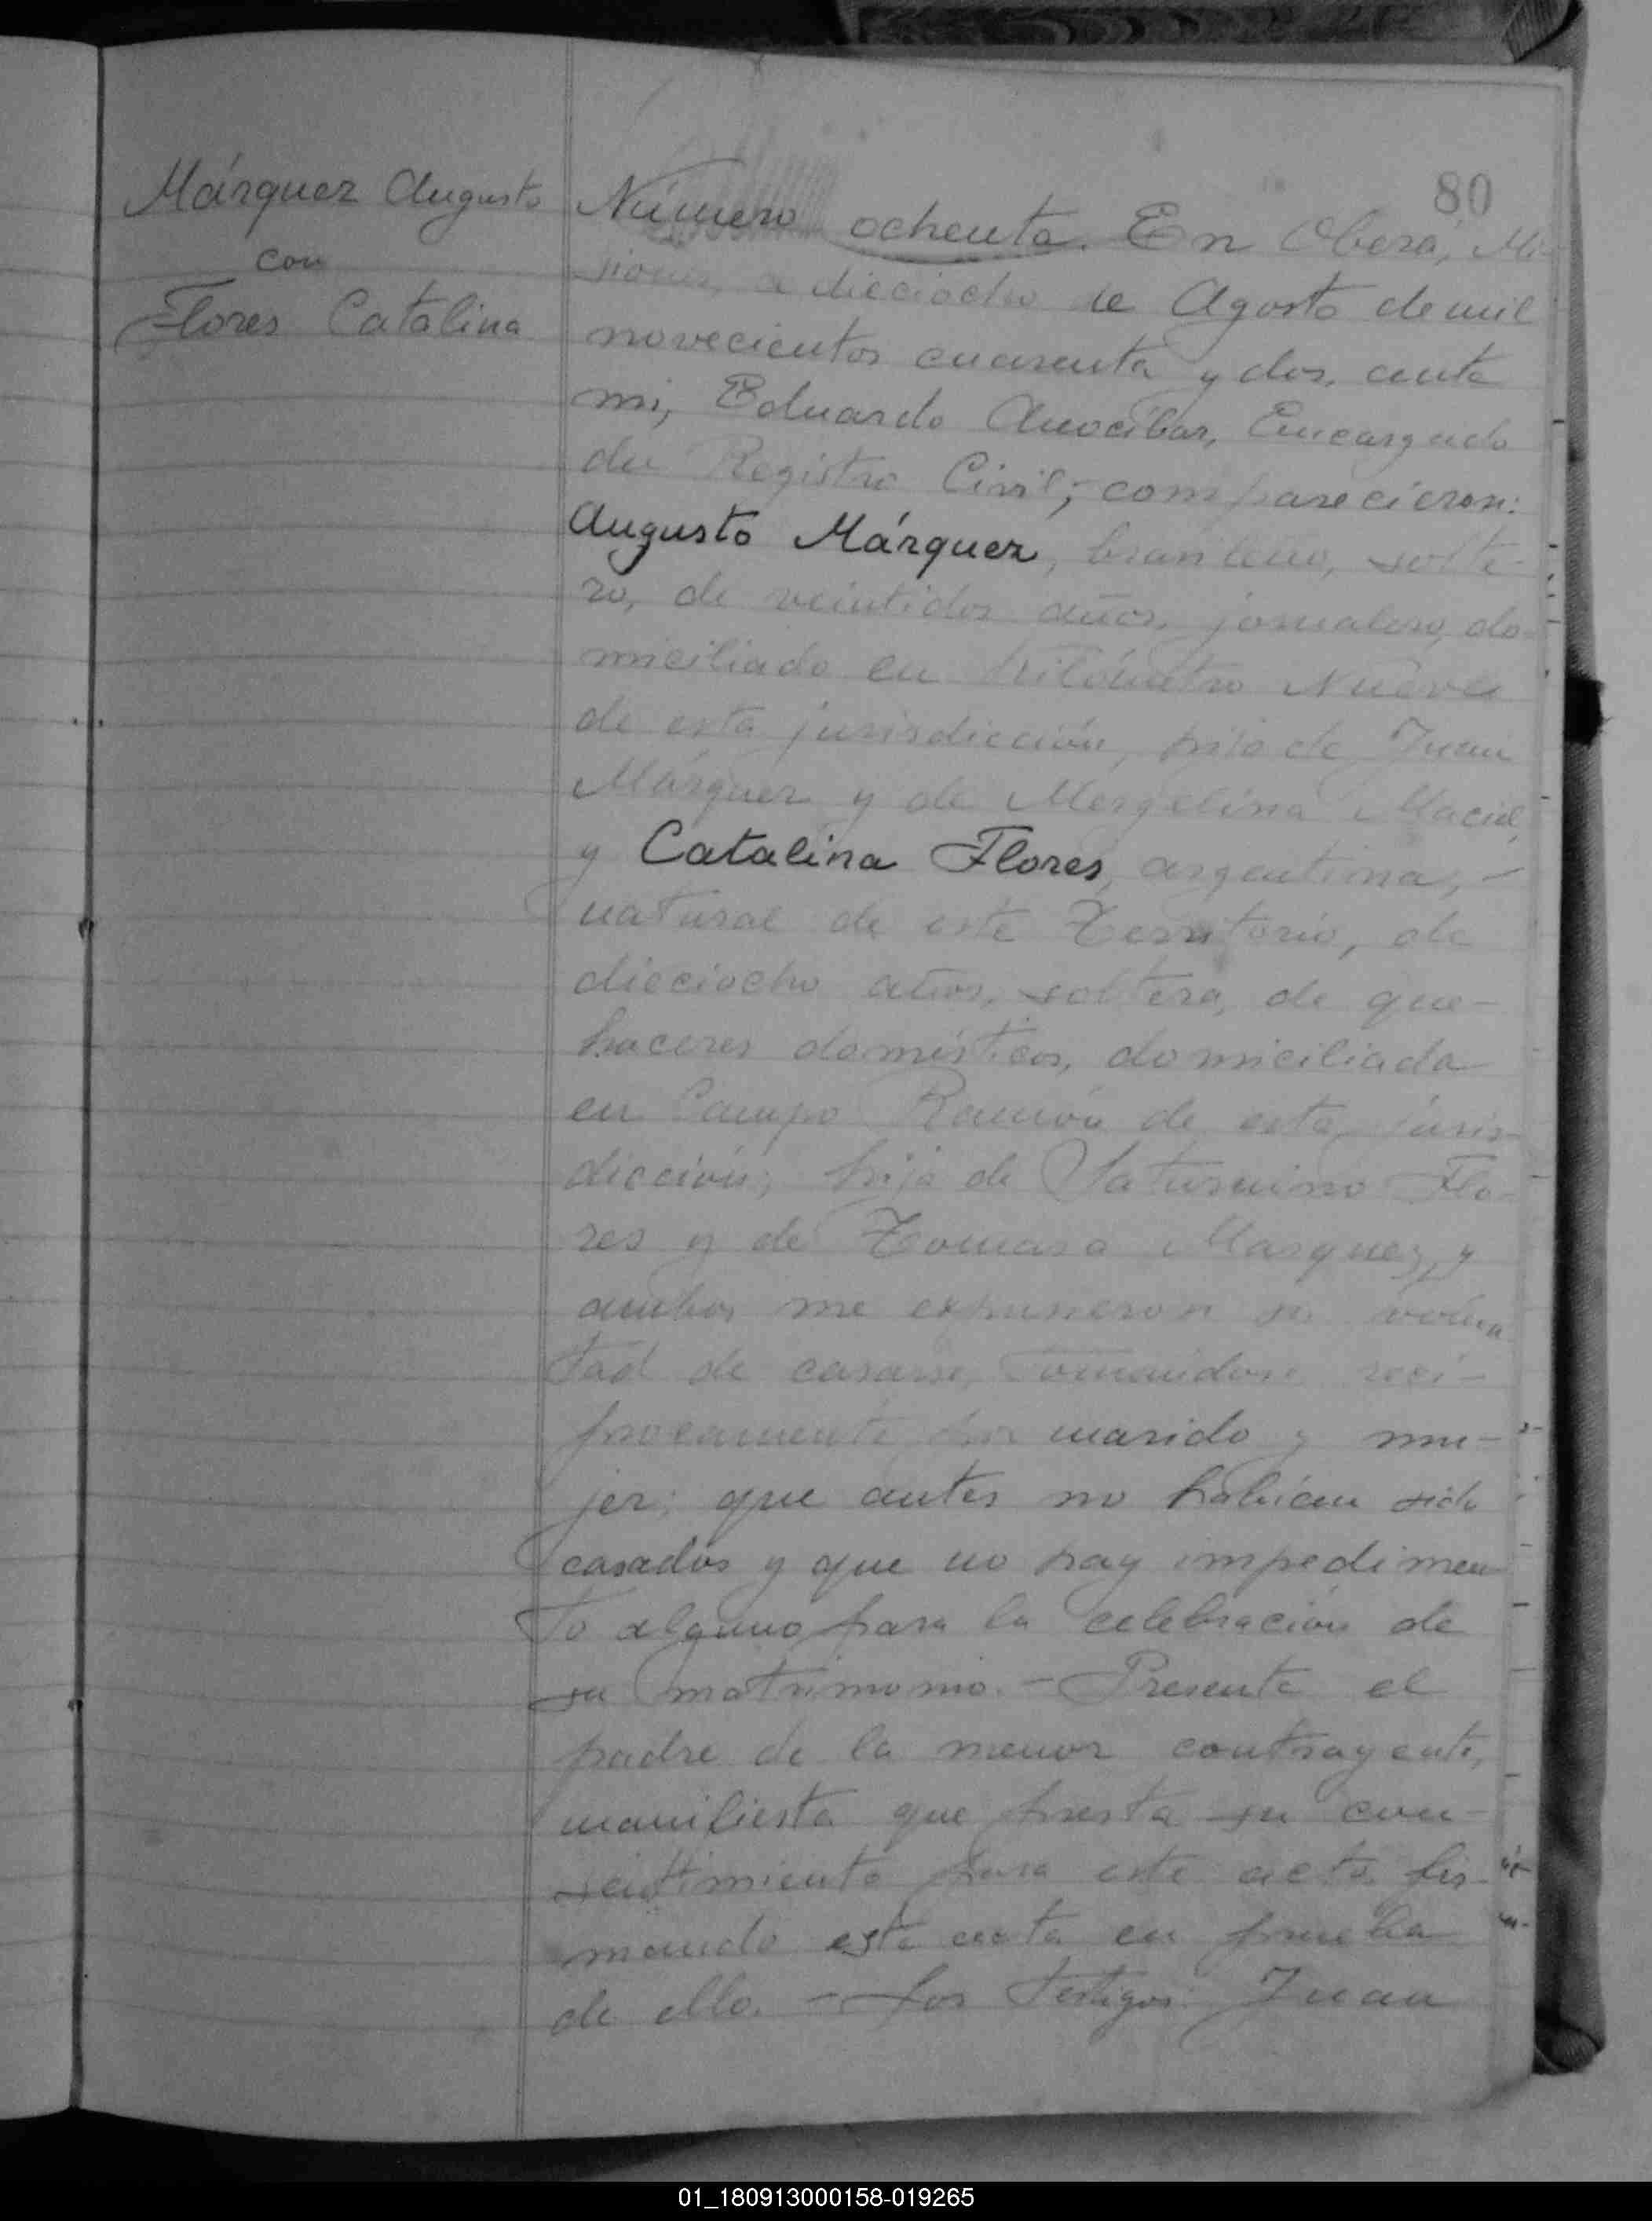 80
Márquez Augusto
con
Flores Catalina
Número ochenta. En Oberá, Mi-
siones, a dieciocho de Agosto de mil
novecientos cuarenta y dos, ante
mi, Eduardo Anocibar, Encargado
del Registro Civil; comparecieron:
Augusto Márquez, brasileño, solte-
ro, de veintidos años, jornalero, do-
miciliado en Kilómetro Nueve
de esta jurisdicción, hijo de Juan
Márquez y de Mergelina Maciel,
y Catalina Flores, argentina, -
natural de este Territorio, de
dieciocho años, soltera, de que-
haceres domésticos, domiciliada
en Campo Ramón de esta juris-
dicción; hija de Saturnino Flo-
res y de Tomasa Marquez, y
ambos me expusieron su volun
tad de casarse, tomandose recí-
procamente por marido y mu-
jer; que antes no habían sido
casados y que no hay impedimen
to alguno para la celebración de
su matrimonio. - Presente el
padre de la menor contrayente,
manifiesta que presta su con-
sentimiento para este acto fir-
mando esta acta en prueba
de ello. - Los testigos: Juan
01_180913000158-019265